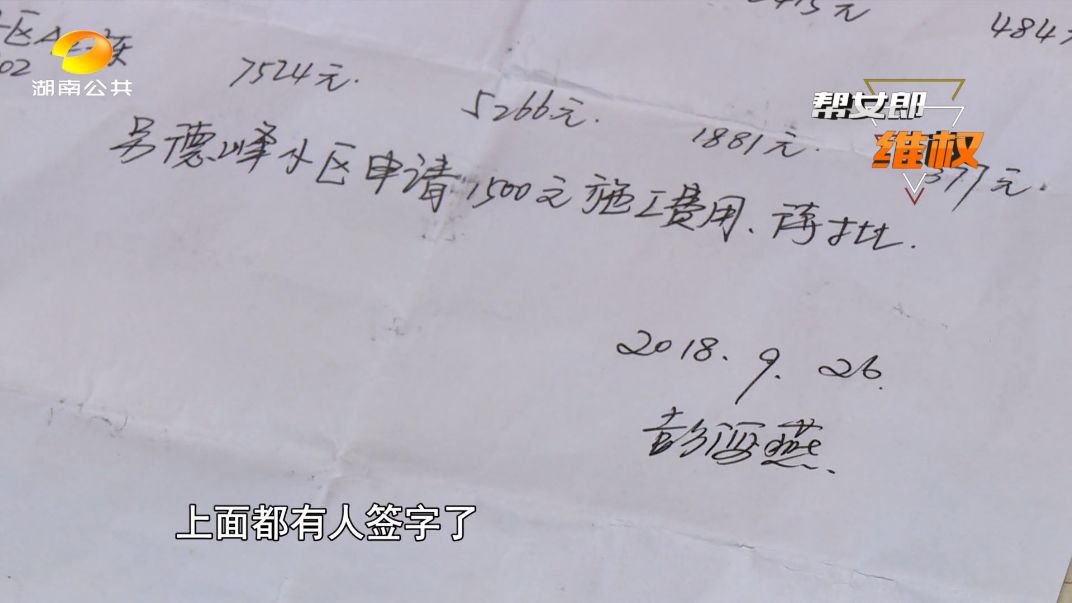 2415元
484
区A
02
7524元.
5266元.
1881元.
377元.
另德峰小区申请1500元施工费用、请批.
2018.9.26.
彭海燕.
湖南公共
帮女郎
维权
上面都有人签字了